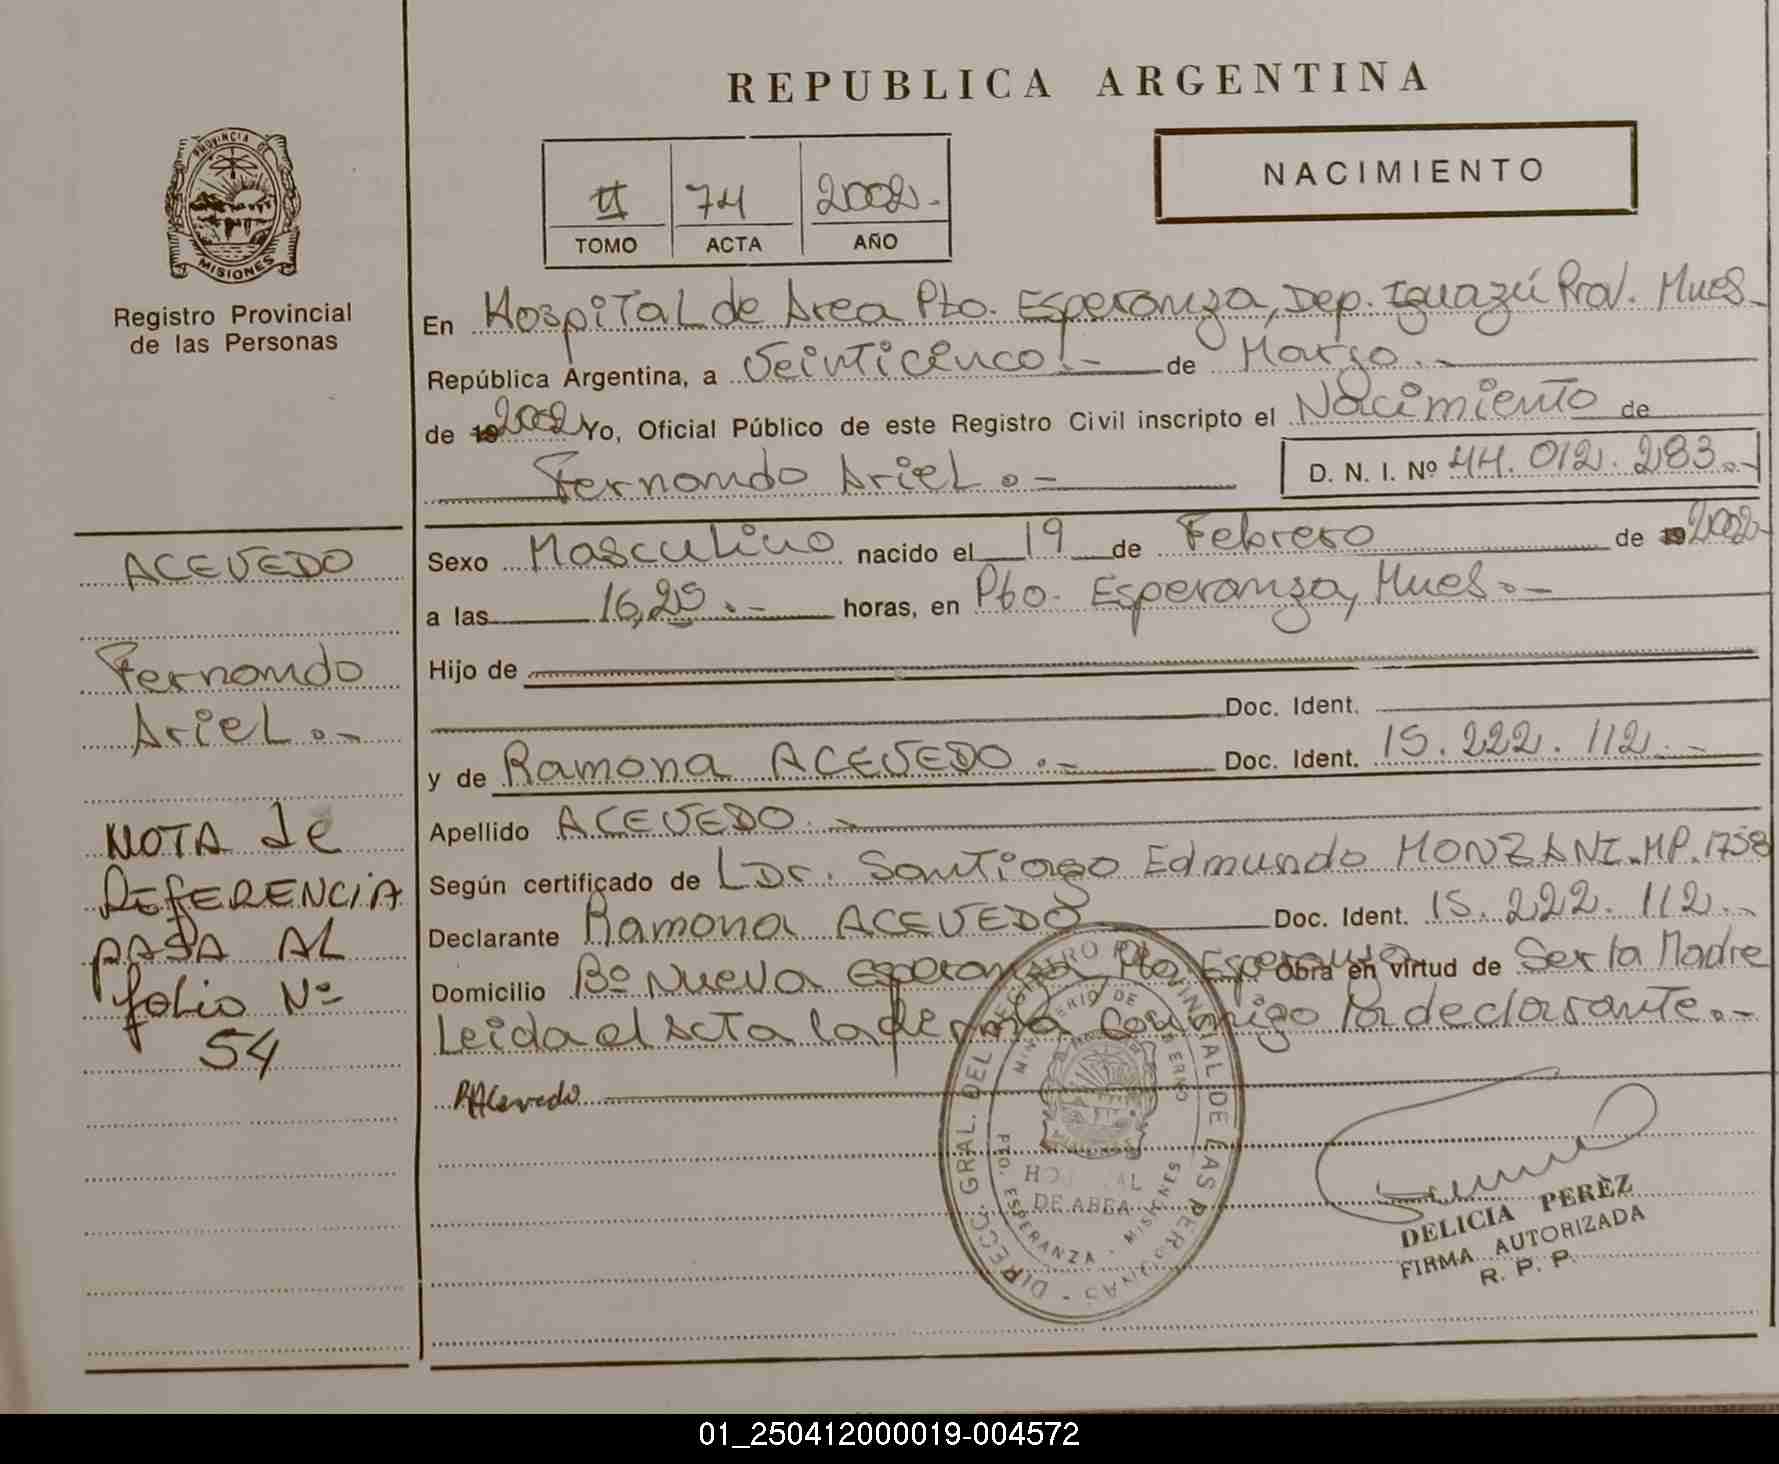 REPUBLICA ARGENTINA
PROVINCIA DE
MISIONES
Registro Provincial
de las Personas
II 74 2002.-
TOMO ACTA AÑO
NACIMIENTO
En Hospital de Area Pto. Esperanza, Dep. Iguazú Prov. Mnes.-
República Argentina, a Veinticinco.- de Marzo.-
de 192002 Yo, Oficial Público de este Registro Civil inscripto el Nacimiento de
Fernando Ariel.- D. N. I. Nº 44.012.283.-
Sexo Masculino nacido el 19 de Febrero de 192002-
a las 16,25.- horas, en Pto. Esperanza, Mnes.-
Hijo de
Doc. Ident.
y de Ramona ACEVEDO.- Doc. Ident. 15.222.112.-
Apellido ACEVEDO.-
Según certificado de L Dr. Santiago Edmundo MONZANI.MP.1758
Declarante Ramona ACEVEDO Doc. Ident. 15.222.112.-
Domicilio Bº Nueva Esperanza, Pto Esperanza Obra en virtud de Ser la Madre
Leida el Acta la firma conmigo la declarante.-
RAcevedo
ACEVEDO
Fernando
Ariel.-
NOTA de
REFERENCIA
PASA AL
folio Nº
54
DIRECC. GRAL. DEL REGISTRO PROVINCIAL DE LAS PERSONAS
MINISTERIO DE
HOSPITAL
DE AREA
PTO. ESPERANZA - MISIONES
DELICIA PERÈZ
FIRMA AUTORIZADA
R. P. P.
01_250412000019-004572